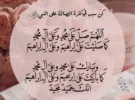 اللهم صل على محمد وعلى آل محمد
كما صليت على إبراهيم وعلى آل إبراهيم
وبارك على محمد وعلى آل محمد
كما باركت على إبراهيم وعلى آل إبراهيم
إنك حميد مجيد